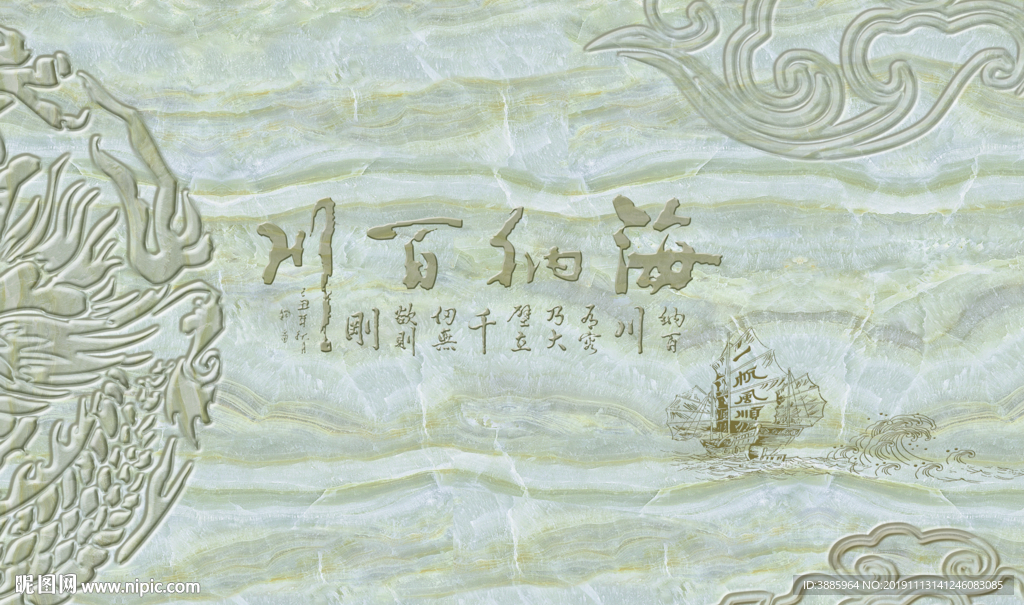 海納百川
納百
川
有容
乃大
壁立
千
仞無
欲則
剛
丁丑年秋月
一帆風順
昵图网 www.nipic.com
ID:3885964 NO:20191113141246083085